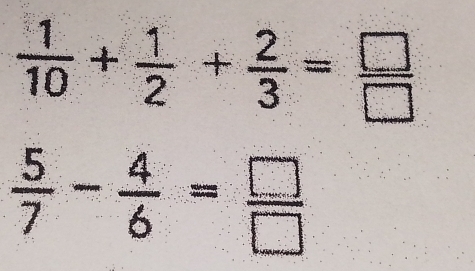 1/10 + 1/2 + 2/3 = □/□
5/7 - 4/6 = □/□